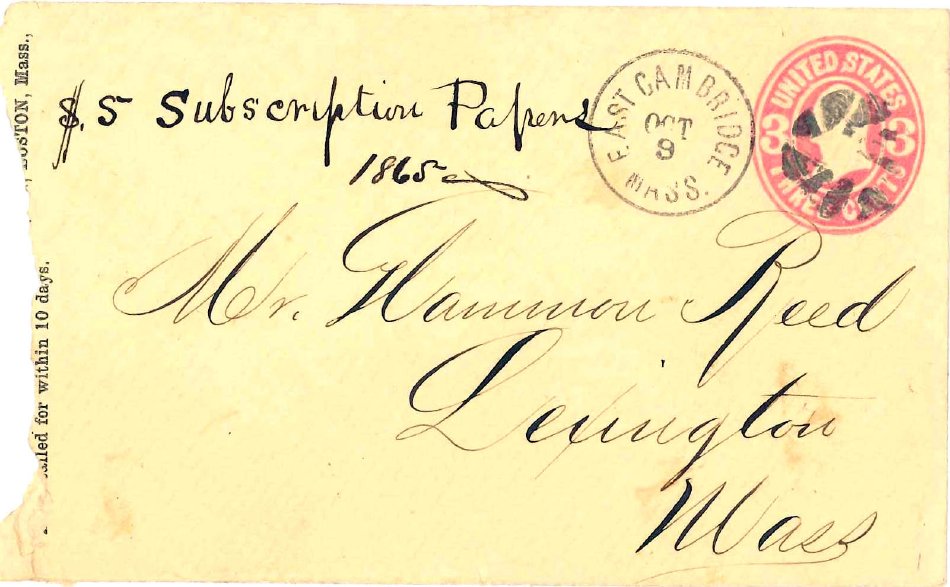 BOSTON, Mass.,
called for within 10 days.
$.5 Subscription Papers
1865
EAST CAMBRIDGE
OCT
9
MASS.
UNITED STATES
3 3
THREE CENTS
Mr. Hammon Reed
Lexington
Mass